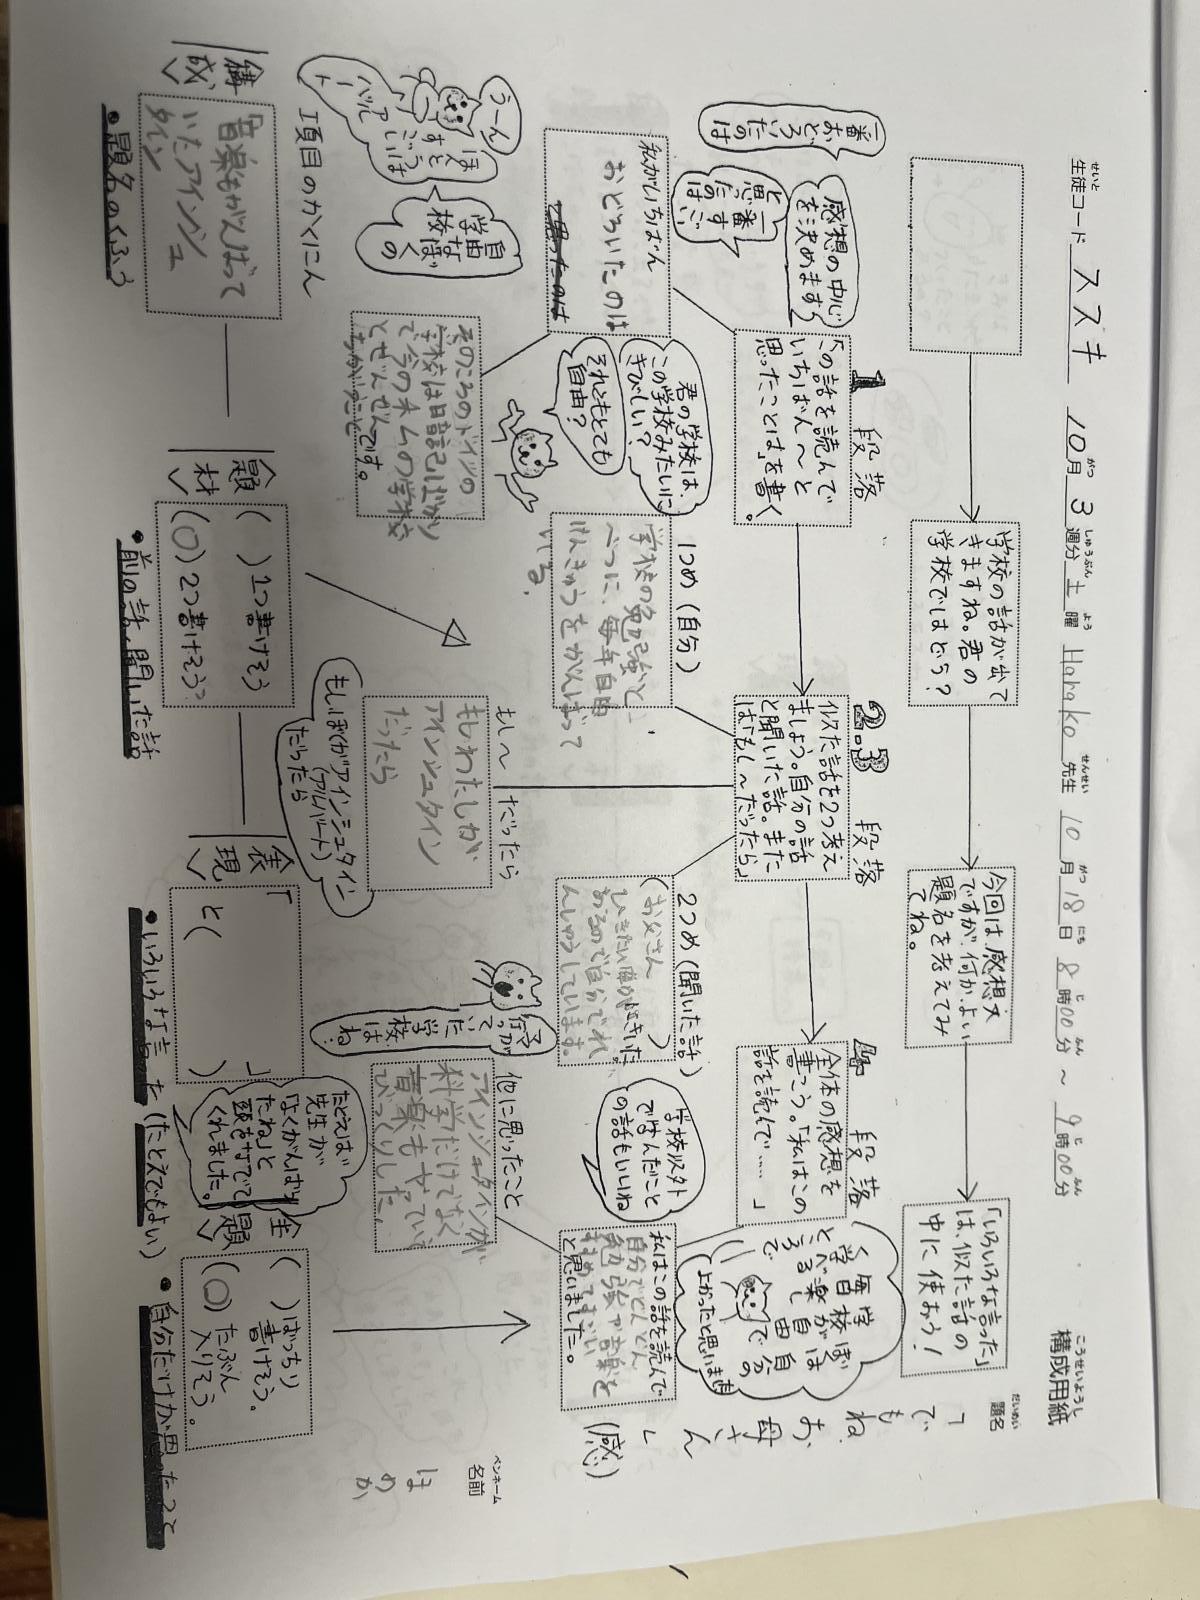 構成用紙
こうせいようし
生徒コード スズキ 10月3週分 土曜 Hanako先生 10月18日 8時00分～9時00分
せいと がつ しゅうぶん よう せんせい がつ にち じ ふん じ ふん
題名
だいめい
「でもね、お母さん」(感)
ペンネーム
名前
ほのか
学校の話が出て
きますね。君の
学校ではどう？
今回は感想文
ですが、何かよい
題名を考えてみ
てね。
「いろいろな言った」
は、似た話の
中に使おう！
1段落
「この話を読んで
いちばん～と
思ったことは」を書く。
2.3段落
似た話を2つ考え
ましょう。自分の話
と聞いた話。また
は「もし～だったら」
4段落
全体の感想を
書こう。「私はこの
話を読んで……」
感想の中心
を決めます
一番おどろいたのは
一番すごい
と思ったのは
私がいちばん
おどろいたのは
君の学校は、
この学校みたいに
きびしい？
それともとても
自由？
うーん
ほんとうは
すごい
アルバート
ぼくの
学校は
自由な
そのころのドイツの
学校は日記ばかり
で今のホムの学校
とぜんぜん
ちがうことです。
1つめ(自分)
学校の勉強と、
べつに、毎年自由
けんきゅうをがんばって
いる。
もし～だったら
もしわたしが
アインシュタイン
だったら
もしぼくがアインシュタイン
(アルバート)
だったら
2つめ(聞いた話)
(お父さん)
ひきたい曲が
あるので自分でれ
んしゅうしています。
学校以外
でまなんだこと
の話もいいね
ママが
行って
いた
学校は
ね
他に思ったこと
アインシュタインが
科学だけでなく
音楽もやっていて
びっくりした。
学校は
毎日が
楽しく
学べる
ところで
自由で
自分の
よかったと思います
私はこの話を読んで
自分でどんどん
勉強や音楽を
すすめてすごい
と思いました。
項目のかくにん
構成
「音楽もがんばって
いたアインシュ
タイン
●題名のくふう
題材
(　)1つ書けそう
(○)2つ書けそう？
●前の話、聞いた話
表現
「　　　」
と(　　　)
●いろいろな言った(たとえでもよい)
たとえば
先生が
「よくがんばっ
たね」と
頭をなでて
くれました。
主題
(　)ばっちり
書けそう。
(○)たぶん
入りそう。
●自分だけが思ったこと